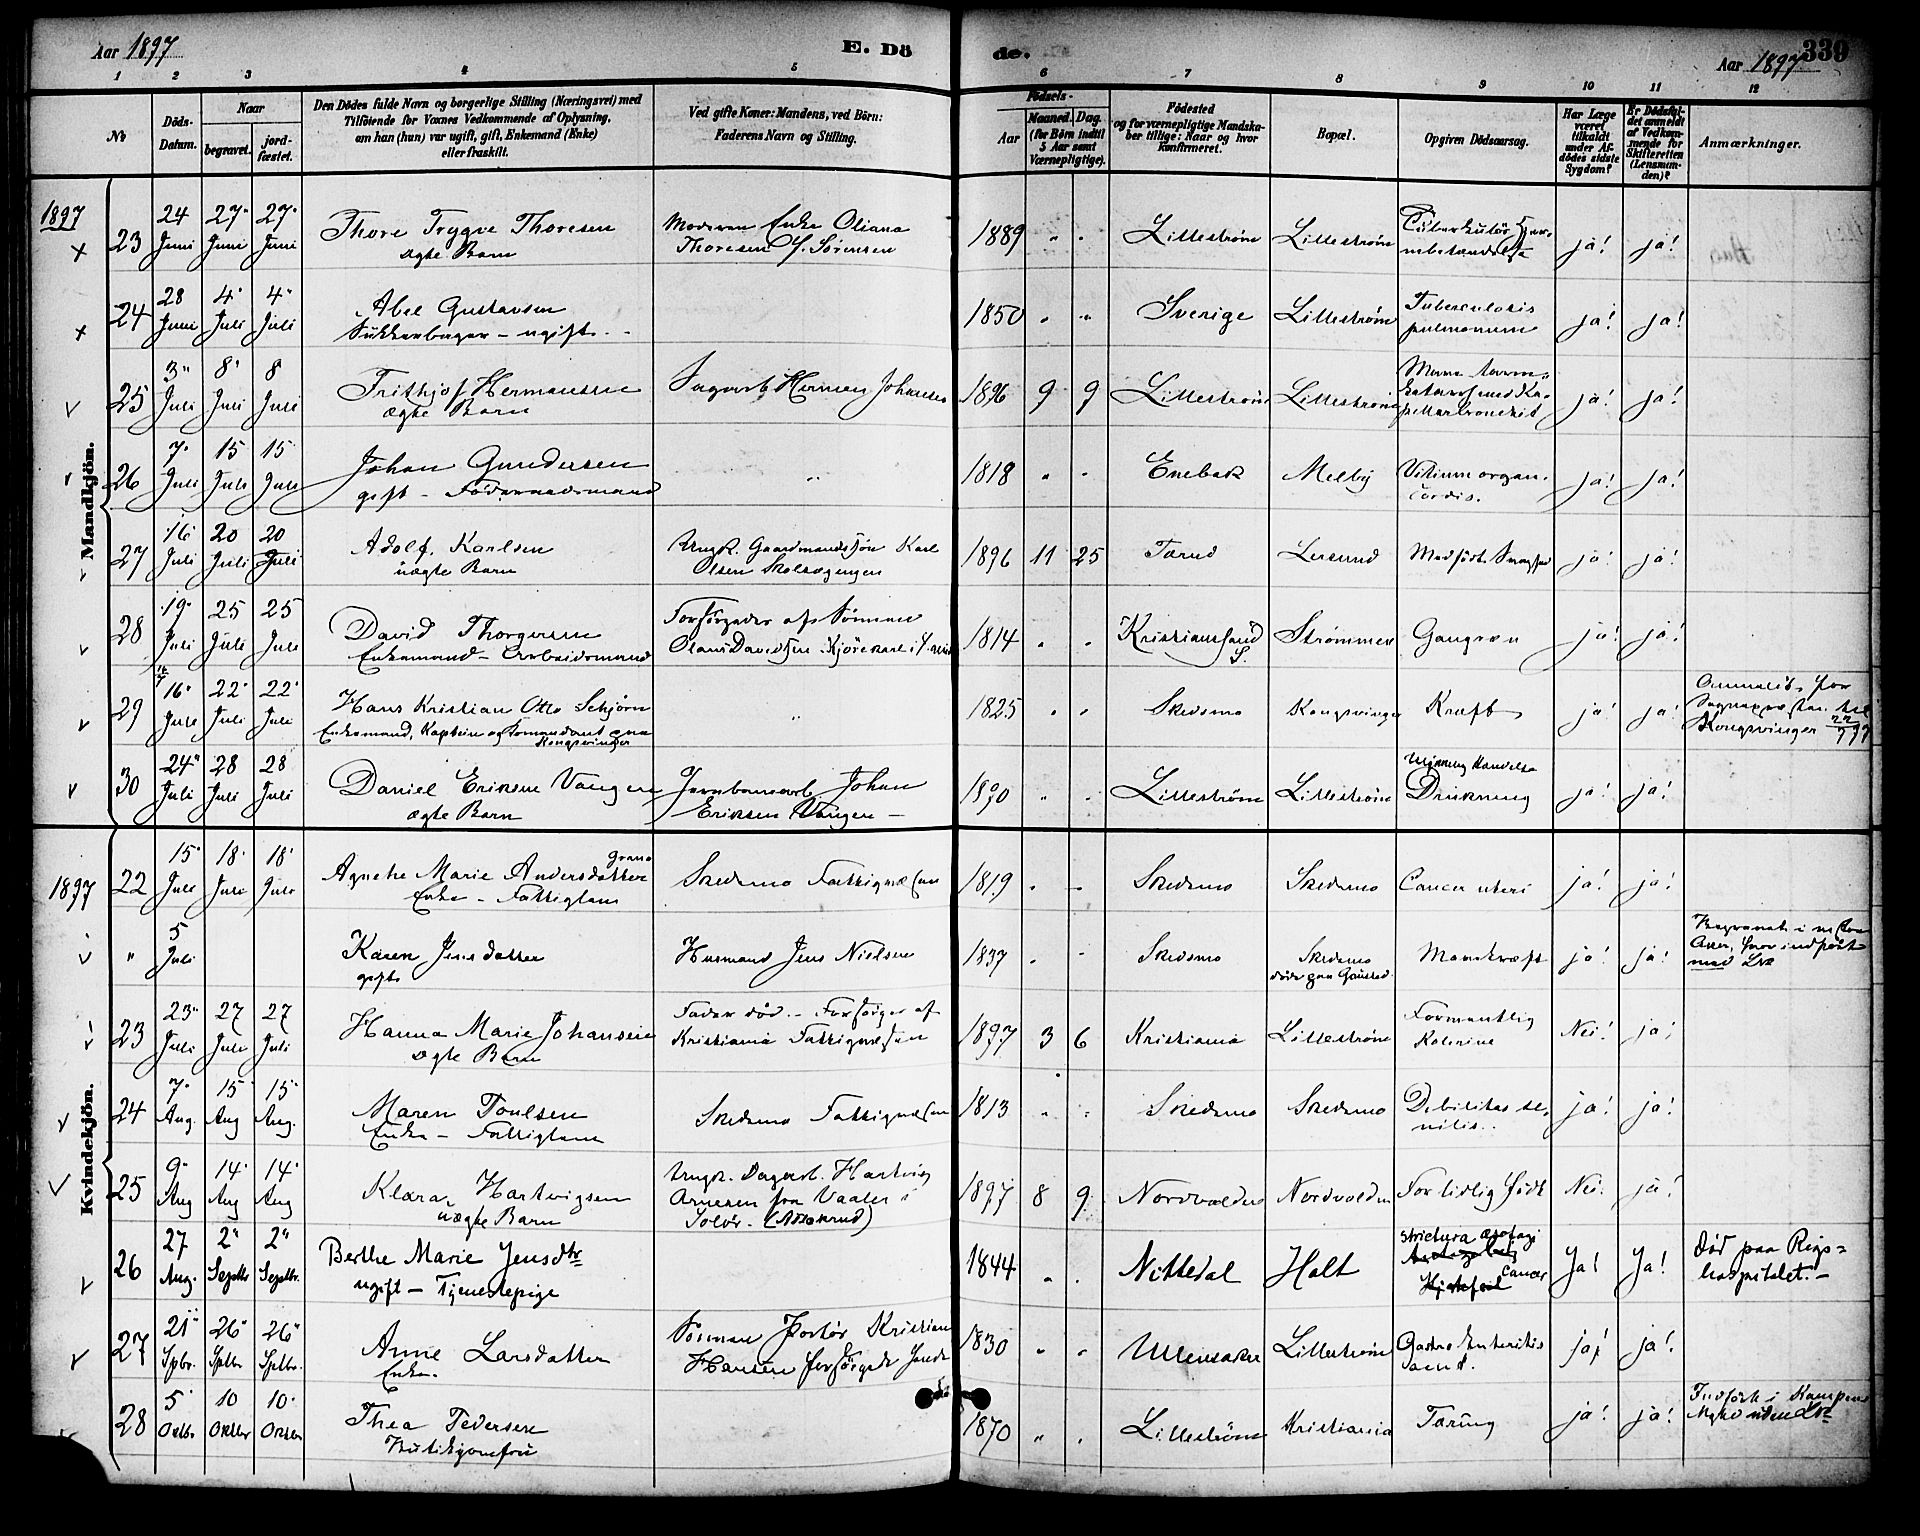 Aar 1897 E. Dö
de. Aar 1897 339
1 2 3 4 5 6 7 8 9 10 11 12
No
Döds-Datum.
Naar
begravet.
jord-fæstet.
Den Dödes fulde Navn og borgerlige Stilling (Næringsvei) med
Tilföiende for Voxnes Vedkommende af Oplysning,
om han (hun) var ugift, gift, Enkemand (Enke)
eller fraskilt.
Ved gifte Koner: Mandens, ved Börn:
Faderens Navn og Stilling.
Födsels-
Aar
Maaned. Dag.
(for Börn indtil
5 Aar samt
Værnepligtige).
Födested
og for værnepligtige Mandska-
ber tillige: Naar og hvor
konfirmeret.
Bopæl.
Opgiven Dödsaarsag.
Har Læge
været
tilkaldt
under Af-
dödes sidste
Sygdom?
Er Dödsfal-
det anmeldt
af Vedkom-
mende for
Skifteretten
(Lensman-
den)?
Anmærkninger.
Mandkjön.
1897
23 24 Juni 27 Juni 27 Juni Thore Trygve Thoresen Moderen Enke Oliana 1889 " " Lillestrøm Lillestrøm ja! ja!
ægte Barn Thoresen f. Sörensen
24 28 Juni 4 Juli 4 Juli Abel Gustavsen 1850 " " Sverige Lillestrøm Tuberculosis ja! ja!
Sukkerbager - ugift pulmonum
25 3 Juli 8 Juli 8 Juli Frithjof Hermansen Herman Johansen 1896 9 9 Lillestrøm Lillestrøm ja! ja!
ægte Barn
26 7 Juli 15 Juli 15 Juli Johan Gundersen " 1818 " " Enebak Melby Vitium organ. ja! ja!
gift - Föderaadsmand cordis.
27 16 Juli 20 Juli 20 Juli Adolf Karlsen Ungk. Gaardmandssön Karl 1896 11 25 Tærud Lersund Medfödt ja! ja!
uægte Barn Olsen
28 19 Juli 25 Juli 25 Juli David Thorgersen Forsörgedes af Sönnen 1814 " " Kristianssand S. Strømmen Gangræn ja! ja!
Enkemand - Arbeidsmand Olaus Davidsen
29 16 Juli 22 Juli 22 Juli Hans Kristian Otto Schjörn " 1825 " " Skedsmo Kongsvinger Kræft ja! ja! Anmeldt for
Enkemand, Kaptein og Komandant paa Kongsvinger Sognepresten til Kongsvinger 22/7 97
30 24 Juli 28 Juli 28 Juli Daniel Eriksen Vangen Jernbanearb. Johan 1890 " " Lillestrøm Lillestrøm Ulykkelig Hændelse ja! ja!
ægte Barn Eriksen Vangen - Drukning
Kvindekjön.
1897
22 15 Juli 18 Juli 18 Juli Agnethe Marie Andersdatter Grano Skedsmo Fattigvæsen 1819 " " Skedsmo Skedsmo Cancer uteri ja! ja!
Enke - Fattiglem
" 5 Juli Karen Jensdatter Husmand Jens Nielsen 1837 " " Skedsmo Skedsmo Mavekræft ja! ja!
gift döde paa Gaustad med Lne
23 23 Juli 27 Juli 27 Juli Hanna Marie Johansen Fader död. - Forsörges af 1897 3 6 Kristiania Lillestrøm Formentlig Nei! ja!
ægte Barn Kristiania Fattigvæsen Kolerine
24 7 Aug. 15 Aug 15 Aug. Maren Poulsen Skedsmo Fattigvæsen 1813 " " Skedsmo Skedsmo Debilitas se- ja! ja!
Enke - Fattiglem nilis.
25 9 Aug 14 Aug 14 Aug Klara Hartvigsen Ungk. Dagarb. Hartvig 1897 8 9 Nordvolden Nordvolden For tidlig födt Nei. ja!
uægte Barn Arnesen fra Vaaler i
Solör.
26 27 Aug. 2 Septbr 2 Septbr. Berthe Marie Jensdtr 1844 " " Nittedal Holt Strictura æsofagi ja! ja! död paa Rigs-
ugift - Tjenestepige Cancer hospitalet. -
27 21 Spbr. 26 Sptbr 26 Sptbr. Anne Larsdatter Sönnen Portör Kristian 1830 " " Ullensaker Lillestrøm Gastro Enteritis ja! ja!
Enke. Hansen forsörgede hende acut.
28 5 Oktbr 10 Oktbr 10 Oktbr Thea Pedersen 1870 " " Lillestrøm Kristiania Tæring ja! ja! Indfört i Kampens
Butikjomfru uden Lne